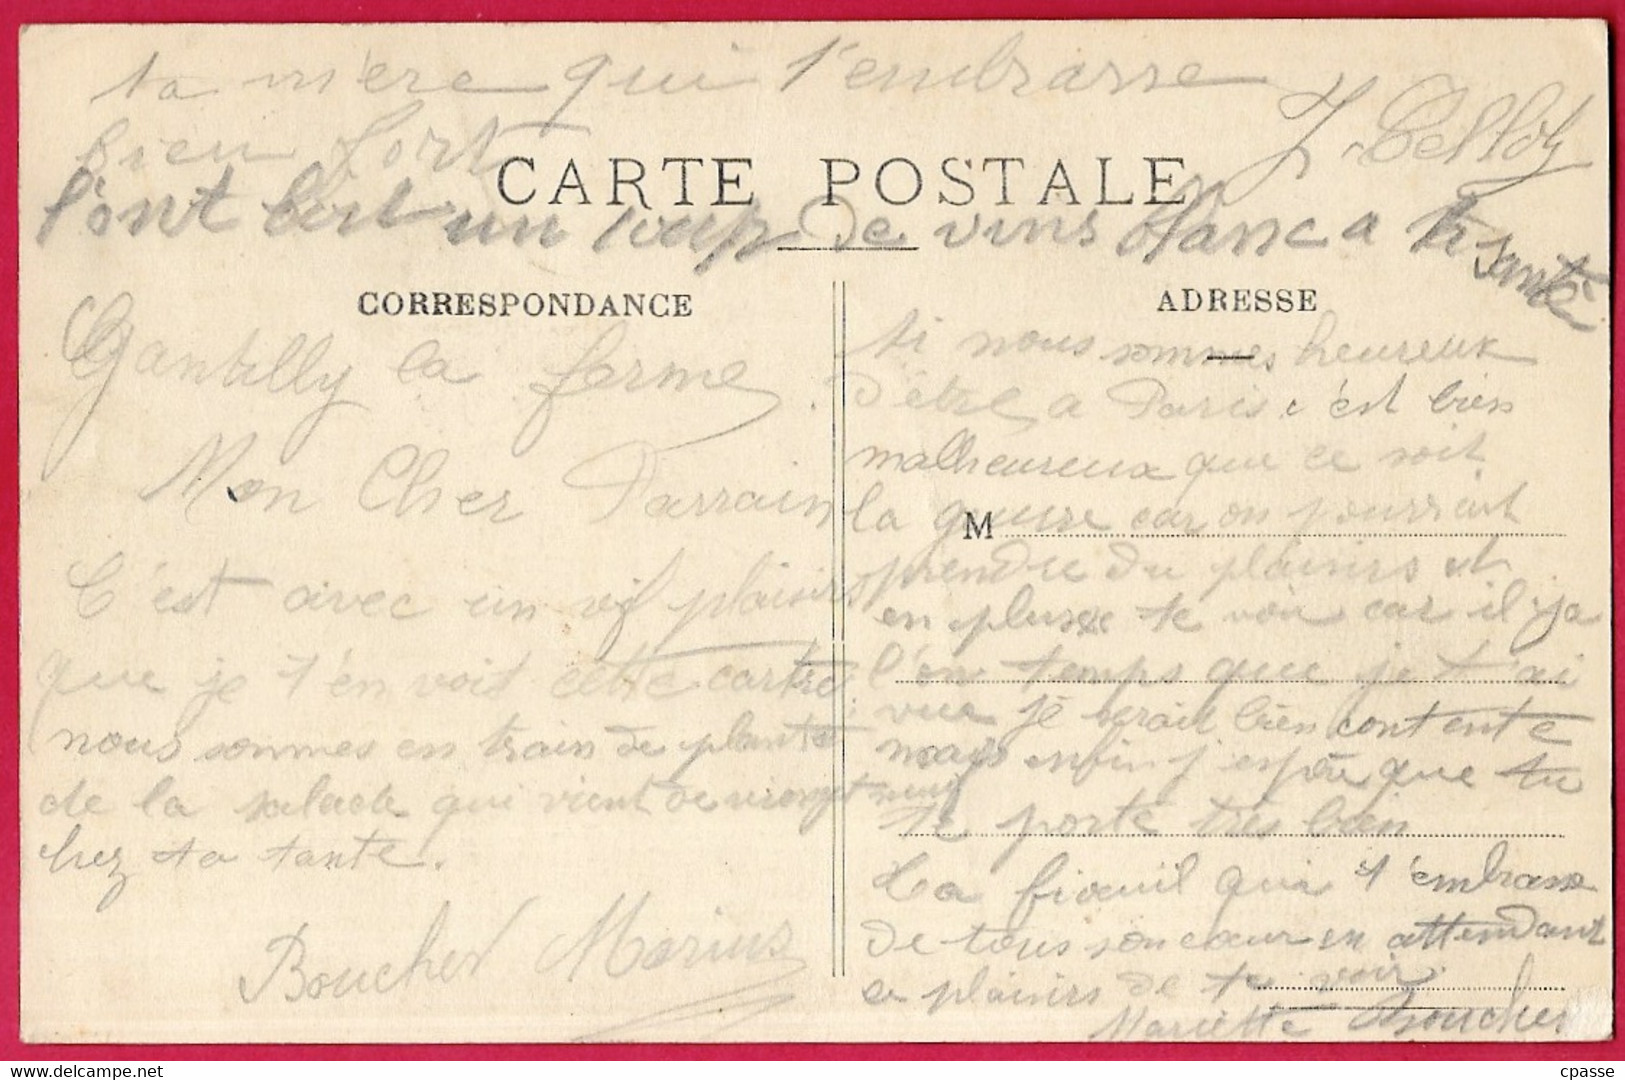 ta mère qui t'embrasse
bien fort
CARTE POSTALE
l'ont boit un coup de vins blanc a ta santé
CORRESPONDANCE
Gantilly la ferme
Mon Cher Parrain
C'est avec un vif plaisirs
que je t'en voit cette cartre
nous sommes en train de planté
de la salade qui vient de
chez ta tante.
Boucher Marius
ADRESSE
si nous sommes heureux
d'être a Paris c'est bien
malheureux que ce soit
la guerre car on pourrait
M
prendre du plaisirs et
en plus te voir car il ya
l'on temps que je t'ai
vue je serait bien contente
mais enfin j'espère que tu
te porte très bien
Ta fieuil qui t'embrasse
de tous son cœur en attendant
ce plaisirs de te voir
Mariette Boucher
cpasse